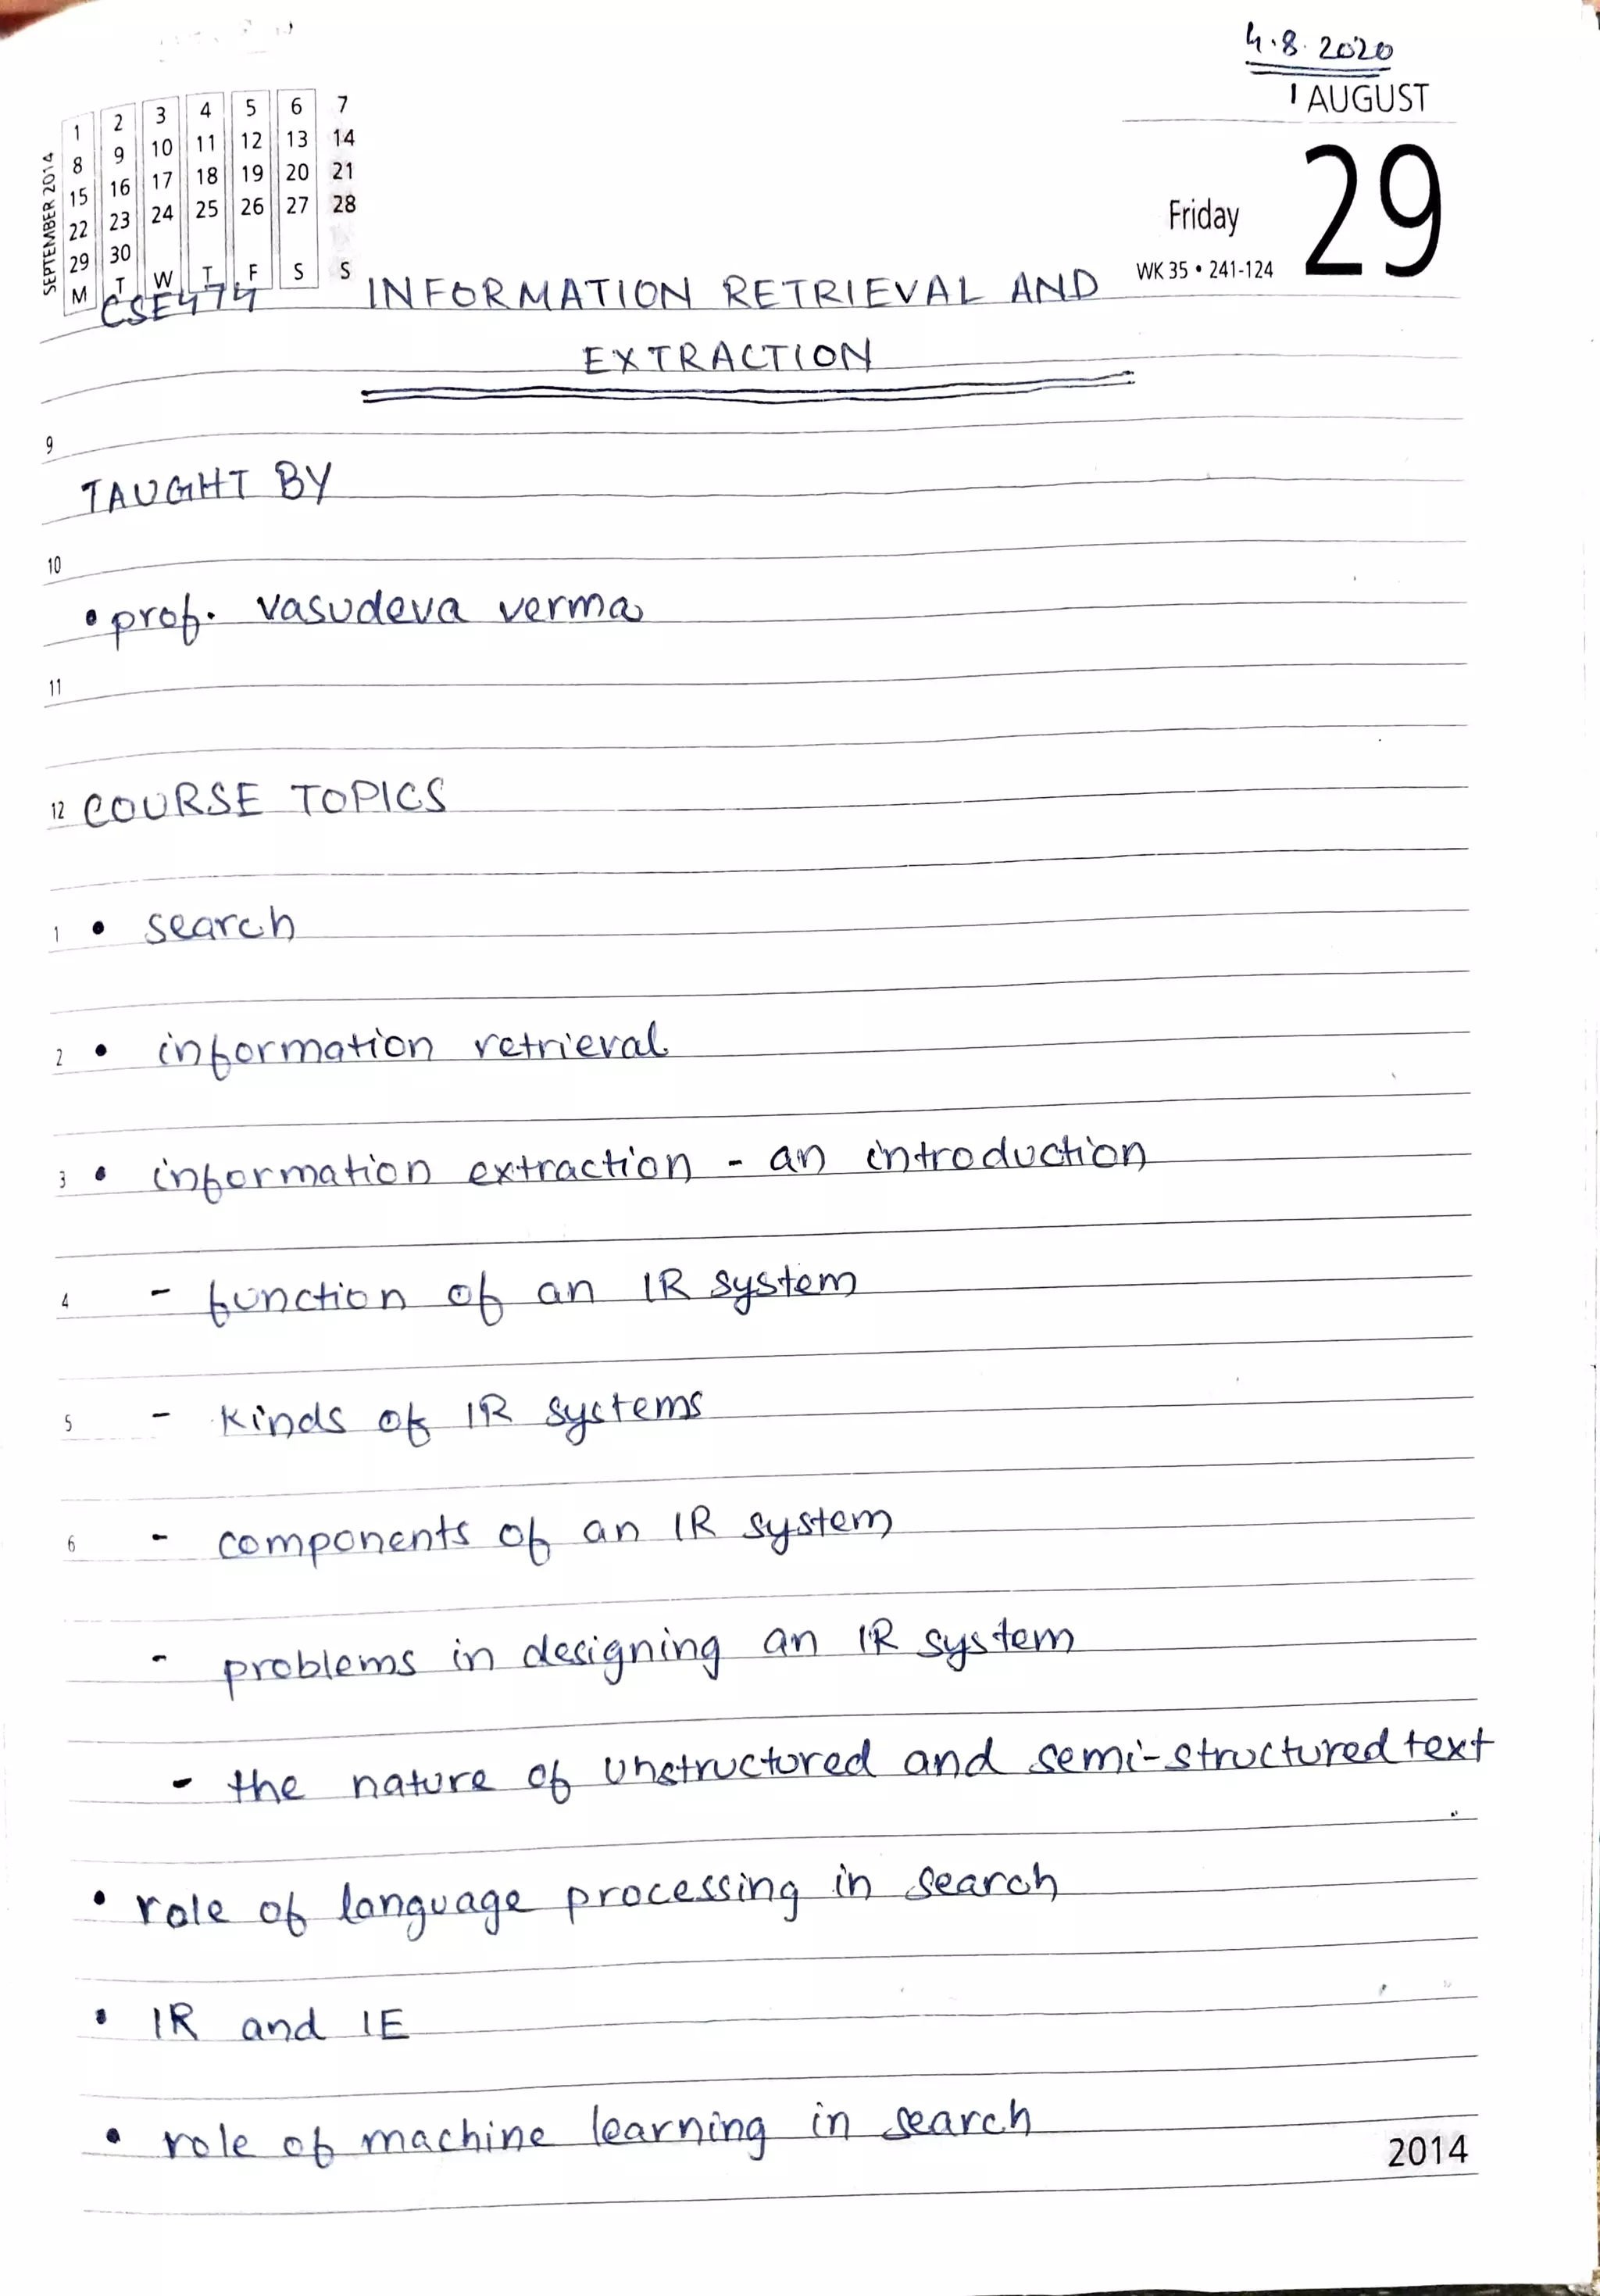 4.8.2020
AUGUST
29
Friday
WK 35 • 241-124
SEPTEMBER 2014
1 2 3 4 5 6 7
8 9 10 11 12 13 14
15 16 17 18 19 20 21
22 23 24 25 26 27 28
29 30
M T W T F S S
CSE474 INFORMATION RETRIEVAL AND
EXTRACTION
9
TAUGHT BY
10
• prof. vasudeva verma
11
12 COURSE TOPICS
1 • search
2 • information retrieval
3 • information extraction - an introduction
4 - function of an IR system
5 - kinds of IR systems
6 - components of an IR system
- problems in designing an IR system
- the nature of unstructured and semi-structured text
• role of language processing in search
• IR and IE
• role of machine learning in search
2014